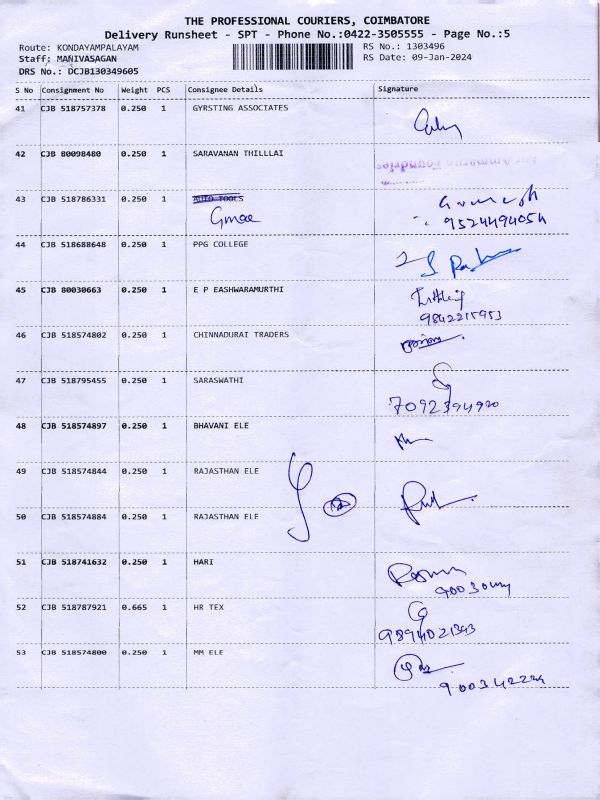 THE PROFESSIONAL COURIERS, COIMBATORE
Delivery Runsheet - SPT - Phone No.:0422-3505555 - Page No.:5
Route: KONDAYAMPALAYAM RS No.: 1303496
Staff: MANIVASAGAN RS Date: 09-Jan-2024
DRS No.: DCJB130349605
S No Consignment No Weight PCS Consignee Details Signature
41 CJB 518757378 0.250 1 GYRSTING ASSOCIATES
42 CJB 80098480 0.250 1 SARAVANAN THILLLAI
43 CJB 518786331 0.250 1 AUTO TOOLS
9524494054
44 CJB 518688648 0.250 1 PPG COLLEGE
45 CJB 80030663 0.250 1 E P EASHWARAMURTHI
9842215953
46 CJB 518574802 0.250 1 CHINNADURAI TRADERS
47 CJB 518795455 0.250 1 SARASWATHI
7092394920
48 CJB 518574897 0.250 1 BHAVANI ELE
49 CJB 518574844 0.250 1 RAJASTHAN ELE
50 CJB 518574884 0.250 1 RAJASTHAN ELE
51 CJB 518741632 0.250 1 HARI
52 CJB 518787921 0.665 1 HR TEX
9894021393
53 CJB 518574800 0.250 1 MM ELE